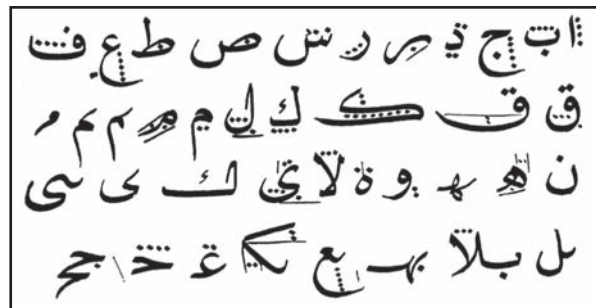 ا ب ج د ر ر س ص ط ع ف
ق ف ك ك ل م م م م
ن ه ه و ة لا ي ك ى ى
ل بلا بهـ ع ك ح